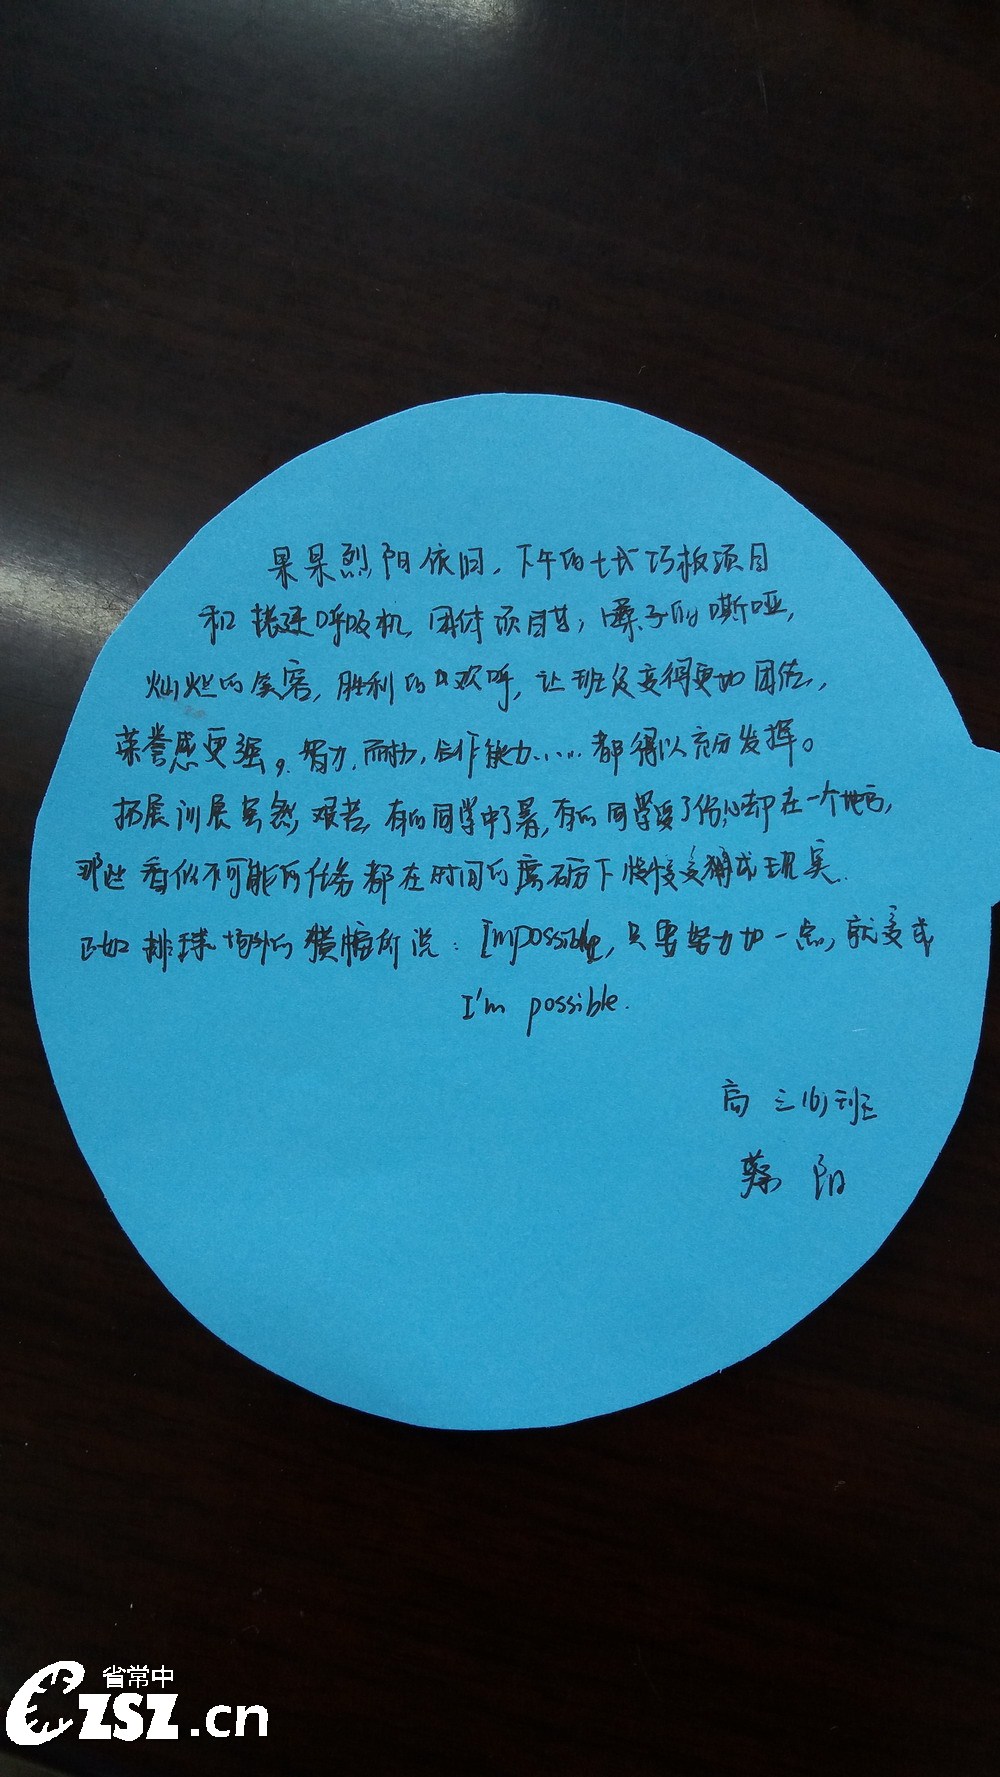 杲杲烈阳依旧，下午的七式巧板项目
和搭建呼吸机，团体项目其，嗓子的嘶哑，
灿烂的笑容，胜利的欢呼，让班级变得更加团结，
荣誉感更强。智力，耐力，创作能力……都得以充分发挥。
拓展训展虽然艰苦，有的同学中了暑，有的同学受了伤，心却在一个地方，
那些看似不可能的任务都在时间的磨砺下慢慢变猵成现实.
正如排球场外的横幅所说：Impossible，只要努力加一点，就变成
I'm possible.
高三(6)班
蔡阳
省常中
CZSZ.cn